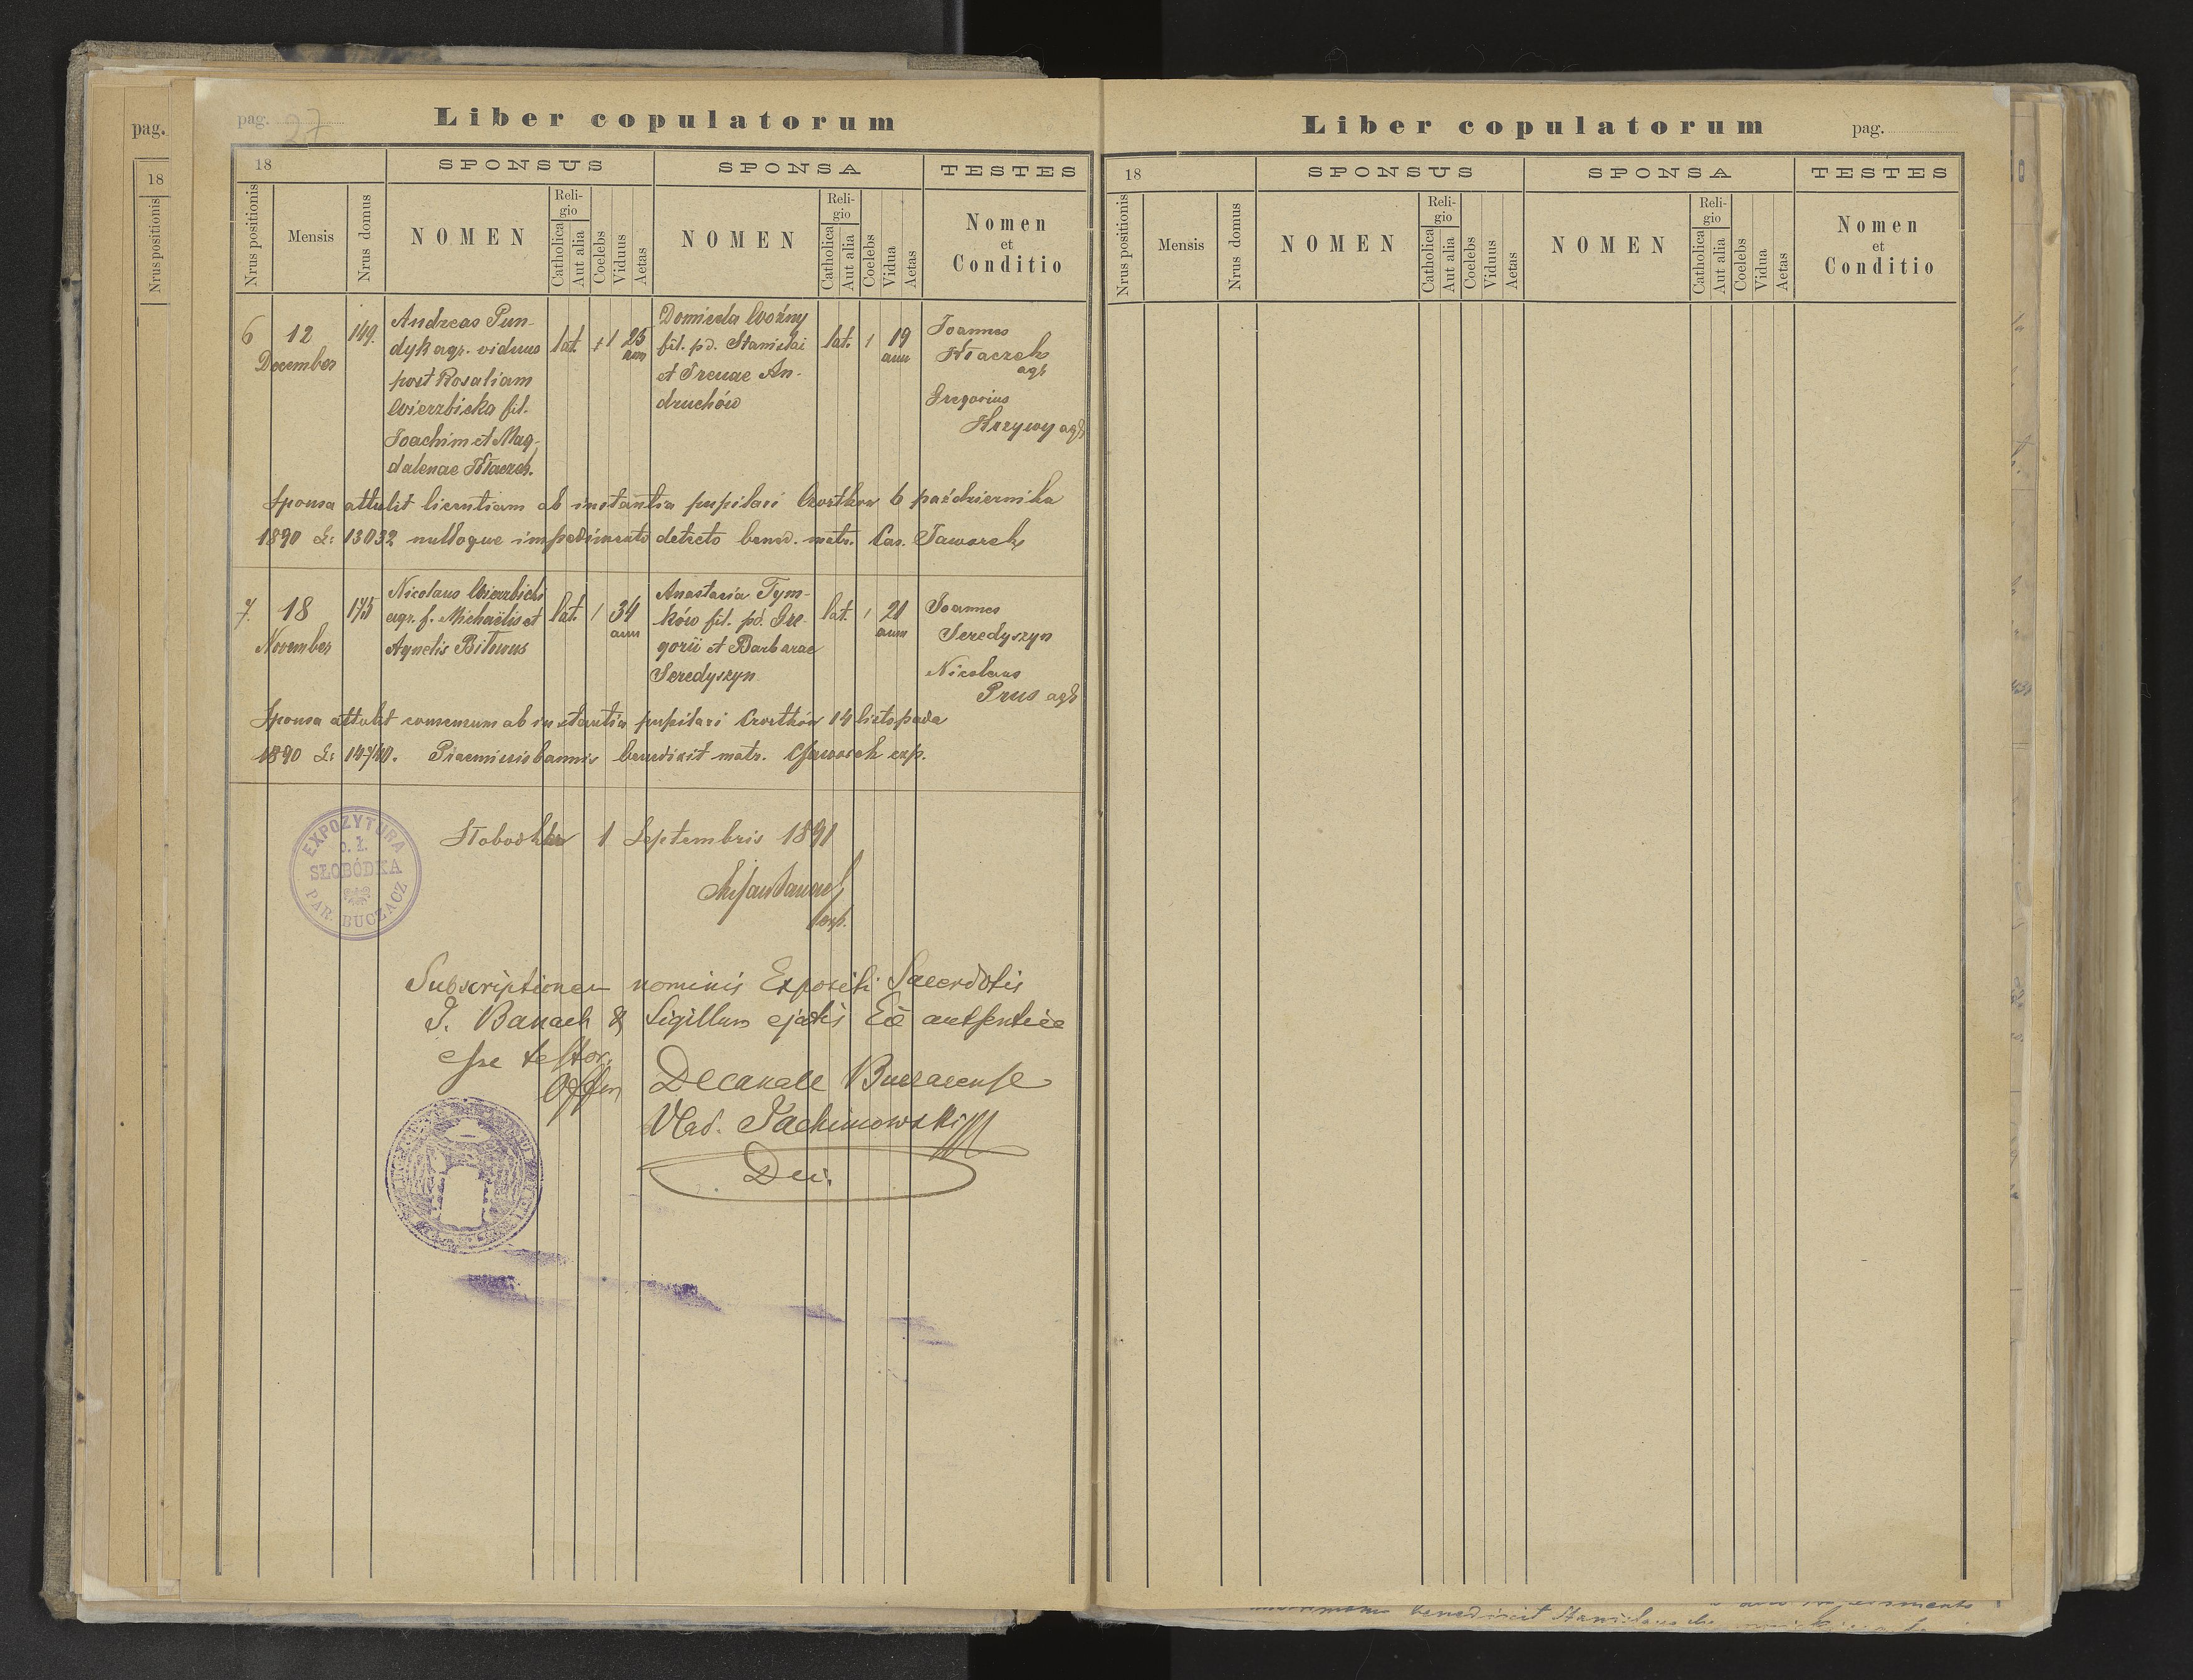 pag. 27
Liber copulatorum
18
SPONSUS
SPONSA
TESTES
Nrus positionis
Mensis
Nrus domus
NOMEN
Religio
Catholica
Aut alia
Coelebs
Viduus
Aetas
NOMEN
Religio
Catholica
Aut alia
Coelebs
Vidua
Aetas
Nomen
et
Conditio
6
12
December
149.
Andreas Pun-
dyk agr. viduus
post Rosaliam
Wierzbicka fil.
Joachim et Mag-
dalenae Tkaczek.
lat.
1
25
ann
Domicela Woźny
fil. pd. Stanislai
et Irenae An-
druchów
lat.
1
19
ann
Joannes
Tkaczek
agr
Gregorius
Krzywy agr
Sponsa attulit licentiam ab instantia pupilari Czortkow 6 października
1890 L: 13032 nulloque impedimento detecto bened. matr. Cas. Jaworek
7.
18
November
175
Nicolaus Wierzbicki
agr. f. Michaëlis et
Agnetis Bitowus
lat.
1
34
ann
Anastasia Tym-
ków fil. pd. Gre-
gorii et Barbarae
Seredyszyn
lat.
1
21
ann
Joannes
Seredyszyn
Nicolaus
Prus agr
Sponsa attulit consensum ab instantia pupilari Czortków 14 listopada
1890 L: 14740. Praemissis bannis benedixit matr. CJaworek exp.
EXPOZYTURA
o. ł.
SŁOBÓDKA
PAR. BUCZACZ
Słobodka 1 Septembris 1891
exp.
Subscriptionem nominis Expositi Sacerdotis
J. Banach & Sigillum ejatis Eċċ authentice
esse testor.
Offm Decanale Buczacense
Vlad. Jachimowski
Dec.
Liber copulatorum
pag.
18
SPONSUS
SPONSA
TESTES
Nrus positionis
Mensis
Nrus domus
NOMEN
Religio
Catholica
Aut alia
Coelebs
Viduus
Aetas
NOMEN
Religio
Catholica
Aut alia
Coelebs
Vidua
Aetas
Nomen
et
Conditio
pag.
18
Nrus positionis
benedixit Stanislaus